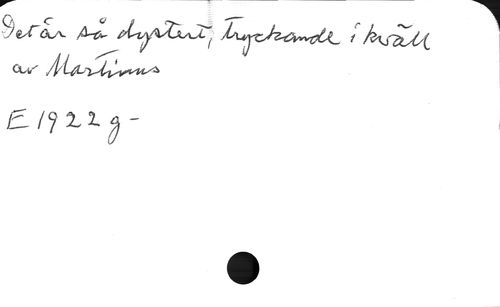 Det är så dystert, tryckande i kväll
av Martinus
E 1922 g -